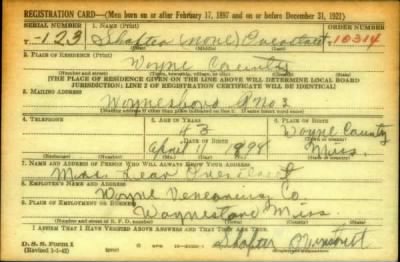 REGISTRATION CARD—(Men born on or after February 17, 1897 and on or before December 31, 1921)
SERIAL NUMBER 1. NAME (Print) ORDER NUMBER
123 Shafter (none) 10314
(First) (Middle) (Last)
2. PLACE OF RESIDENCE (Print)
Wayne County
(Number and street) (Town, township, village, or city) (County) (State)
[THE PLACE OF RESIDENCE GIVEN ON THE LINE ABOVE WILL DETERMINE LOCAL BOARD
JURISDICTION; LINE 2 OF REGISTRATION CERTIFICATE WILL BE IDENTICAL]
3. MAILING ADDRESS
Waynesboro 2
[Mailing address if other than place indicated on line 2. If same insert word same]
4. TELEPHONE 5. AGE IN YEARS 6. PLACE OF BIRTH
43 Wayne County
DATE OF BIRTH (Town or county)
April 11 1898 Miss
(Exchange) (Number) (Mo.) (Day) (Yr.) (State or country)
7. NAME AND ADDRESS OF PERSON WHO WILL ALWAYS KNOW YOUR ADDRESS
Mrs.
8. EMPLOYER'S NAME AND ADDRESS
Wayne Co
9. PLACE OF EMPLOYMENT OR BUSINESS
Miss.
(Number and street or R. F. D. number) (Town) (County) (State)
I AFFIRM THAT I HAVE VERIFIED ABOVE ANSWERS AND THAT THEY ARE TRUE.
D. S. S. Form 1
Shafter